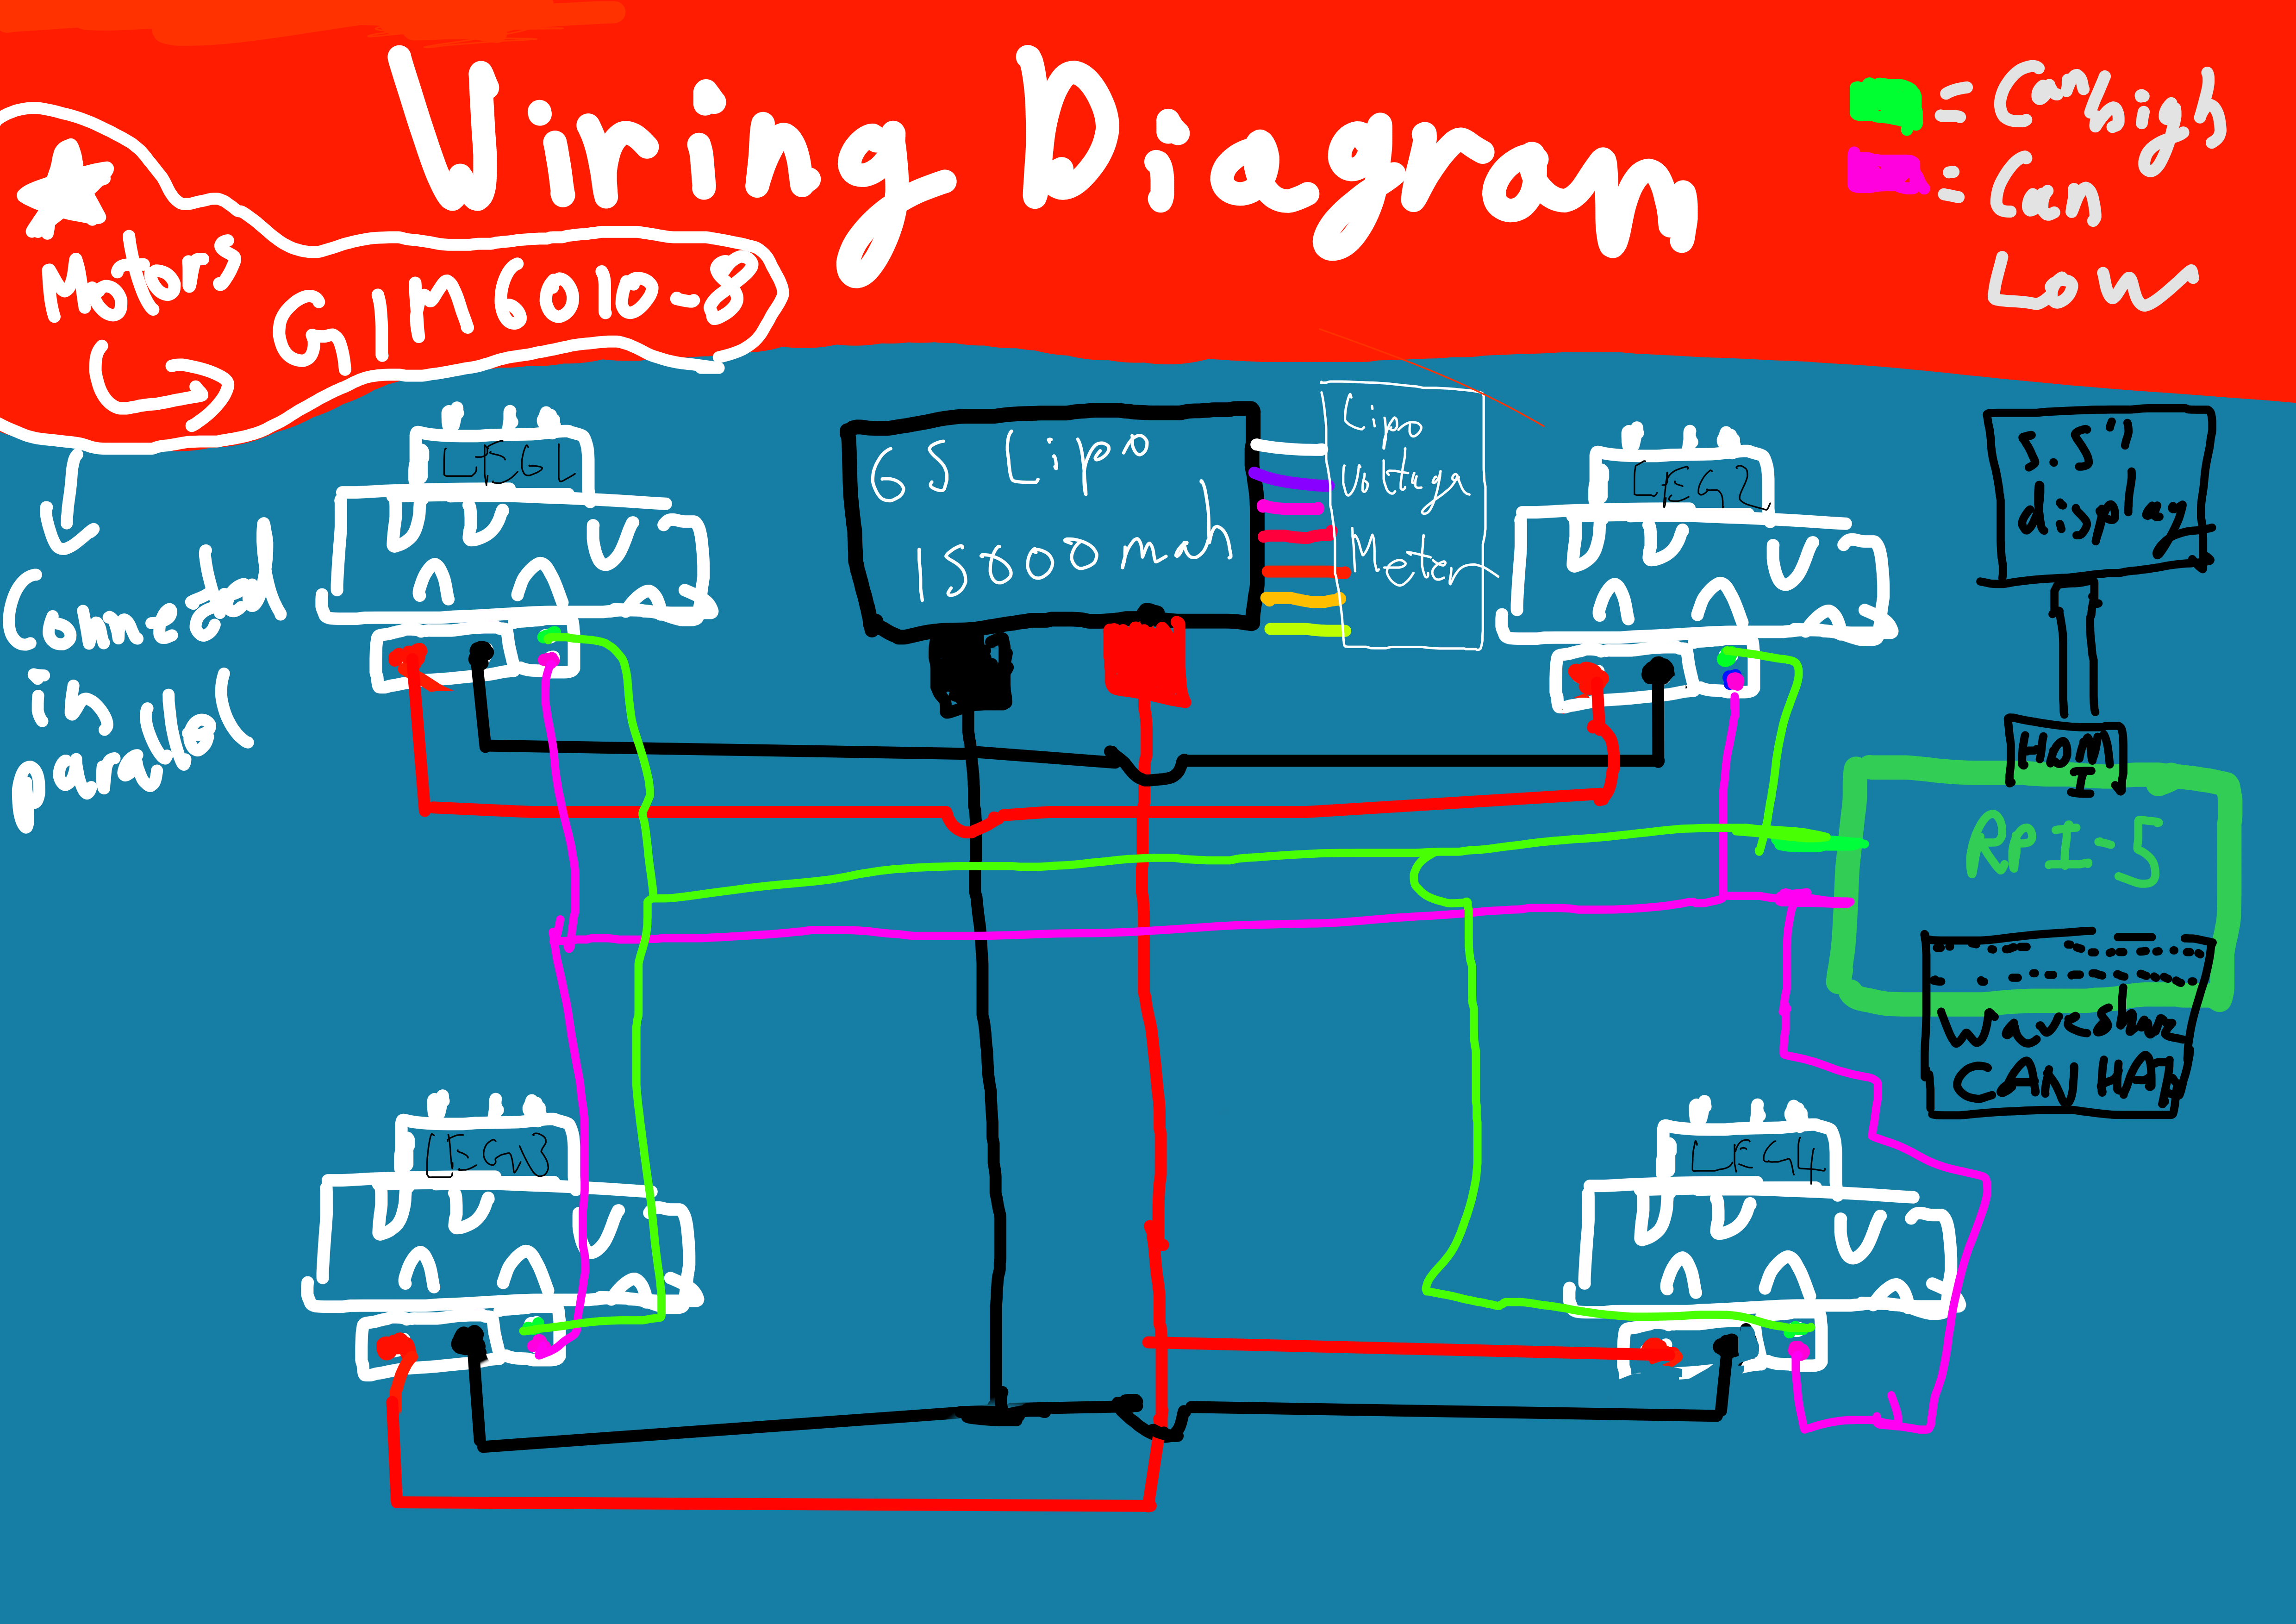 Wiring Diagram
= Can high
= Can
Low
Motors
GIM6010-8
Connected
in
parallel
LEG1
6S Lipo
15000 mah
Lipo
Voltage
Meter
LEG2
5.5"
display
HDMI
RPI-5
Waveshare
CAN HAT
LEG3
LEG4